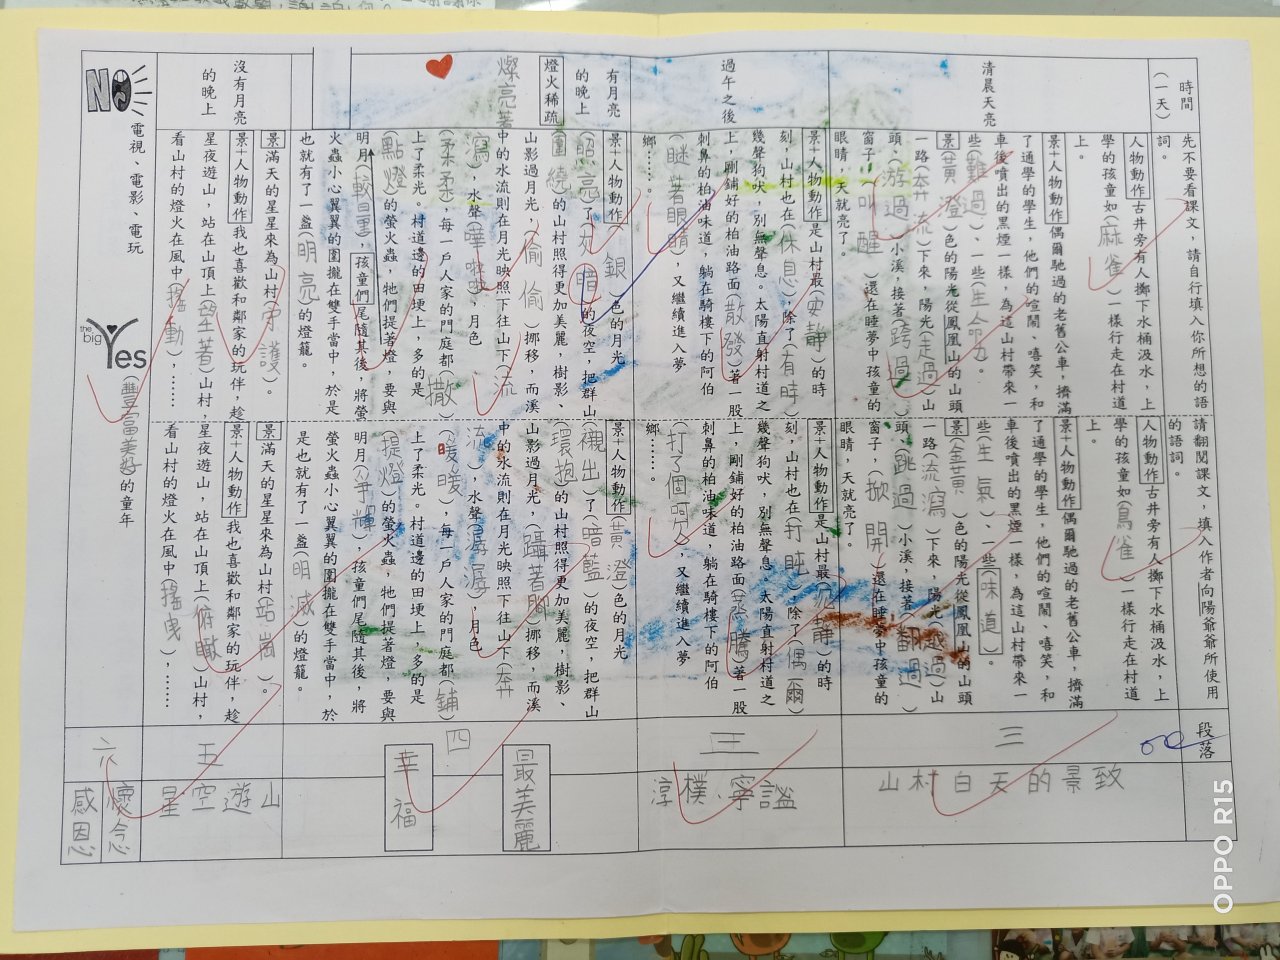 時間
(一天)
先不要看課文，請自行填入你所想的語
詞。
請翻閱課文，填入作者向陽爺爺所使用
的語詞。
段落
清晨天亮
人物動作 古井旁有人擲下水桶汲水，上
學的孩童如(麻雀)一樣行走在村道
上。
景+人物動作 偶爾馳過的老舊公車，擠滿
了通學的學生，他們的喧鬧、嘻笑，和
車後噴出的黑煙一樣，為這山村帶來一
些(難過)、一些(生命力)。
景(黃澄)色的陽光從鳳凰山的山頭
一路(奔流)下來，陽光(走過)山
頭，(游過)小溪，接著(跨過)
窗子，(叫醒)還在睡夢中孩童的
眼睛，天就亮了。
人物動作 古井旁有人擲下水桶汲水，上
學的孩童如(鳥雀)一樣行走在村道
上。
景+人物動作 偶爾馳過的老舊公車，擠滿
了通學的學生，他們的喧鬧、嘻笑，和
車後噴出的黑煙一樣，為這山村帶來一
些(生氣)、一些(味道)。
景(金黃)色的陽光從鳳凰山的山頭
一路(流瀉)下來，陽光(越過)山
頭，(跳過)小溪，接著(翻過)
窗子，(掀開)還在睡夢中孩童的
眼睛，天就亮了。
三
山村白天的景致
過午之後
景+人物動作 是山村最(安靜)的時
刻，山村也在(休息)，除了(有時)
幾聲狗吠，別無聲息。太陽直射村道之
上，剛鋪好的柏油路面(散發)著一股
刺鼻的柏油味道，躺在騎樓下的阿伯
(瞇著眼睛)，又繼續進入夢
鄉……。
景+人物動作 是山村最(沉靜)的時
刻，山村也在(打盹)，除了(偶爾)
幾聲狗吠，別無聲息。太陽直射村道之
上，剛鋪好的柏油路面(蒸騰)著一股
刺鼻的柏油味道，躺在騎樓下的阿伯
(打了個呵欠)，又繼續進入夢
鄉……。
三
淳樸、寧謐
有月亮
的晚上
燈火稀疏
燦亮著
景+人物動作(銀)色的月光
(照亮)了(灰暗)的夜空，把群山
(圍繞)的山村照得更加美麗，樹影、
山影過月光，(偷偷)挪移，而溪
中的水流則在月光映照下往山下(流
瀉)，水聲(嘩啦)，月色
(柔柔)，每一戶人家的門庭都(撒)
上了柔光。村道邊的田埂上，多的是
(點燈)的螢火蟲，牠們提著燈，要與
明月(較量)，孩童們尾隨其後，將螢
火蟲小心翼翼的圍攏在雙手當中，於是
也就有了一盞(明亮)的燈籠。
景+人物動作(黃澄)色的月光
(襯出)了(暗藍)的夜空，把群山
(環抱)的山村照得更加美麗，樹影、
山影過月光，(躡著腳)挪移，而溪
中的水流則在月光映照下往山下(奔
流)，水聲(潺潺)，月色
(暖暖)，每一戶人家的門庭都(鋪)
上了柔光。村道邊的田埂上，多的是
(提燈)的螢火蟲，牠們提著燈，要與
明月(爭輝)，孩童們尾隨其後，將
螢火蟲小心翼翼的圍攏在雙手當中，於
是也就有了一盞(明滅)的燈籠。
四
最美麗
幸福
沒有月亮
的晚上
景 滿天的星星來為山村(守護)。
景+人物動作 我也喜歡和鄰家的玩伴，趁
星夜遊山，站在山頂上(望著)山村，
看山村的燈火在風中(搖動)，……
景 滿天的星星來為山村(站崗)。
景+人物動作 我也喜歡和鄰家的玩伴，趁
星夜遊山，站在山頂上(俯瞰)山村，
看山村的燈火在風中(搖曳)，……
五
星空遊山
NO
電視、電影、電玩
the big Yes
(豐富美好)的童年
六
懷念
感恩
OPPO R15